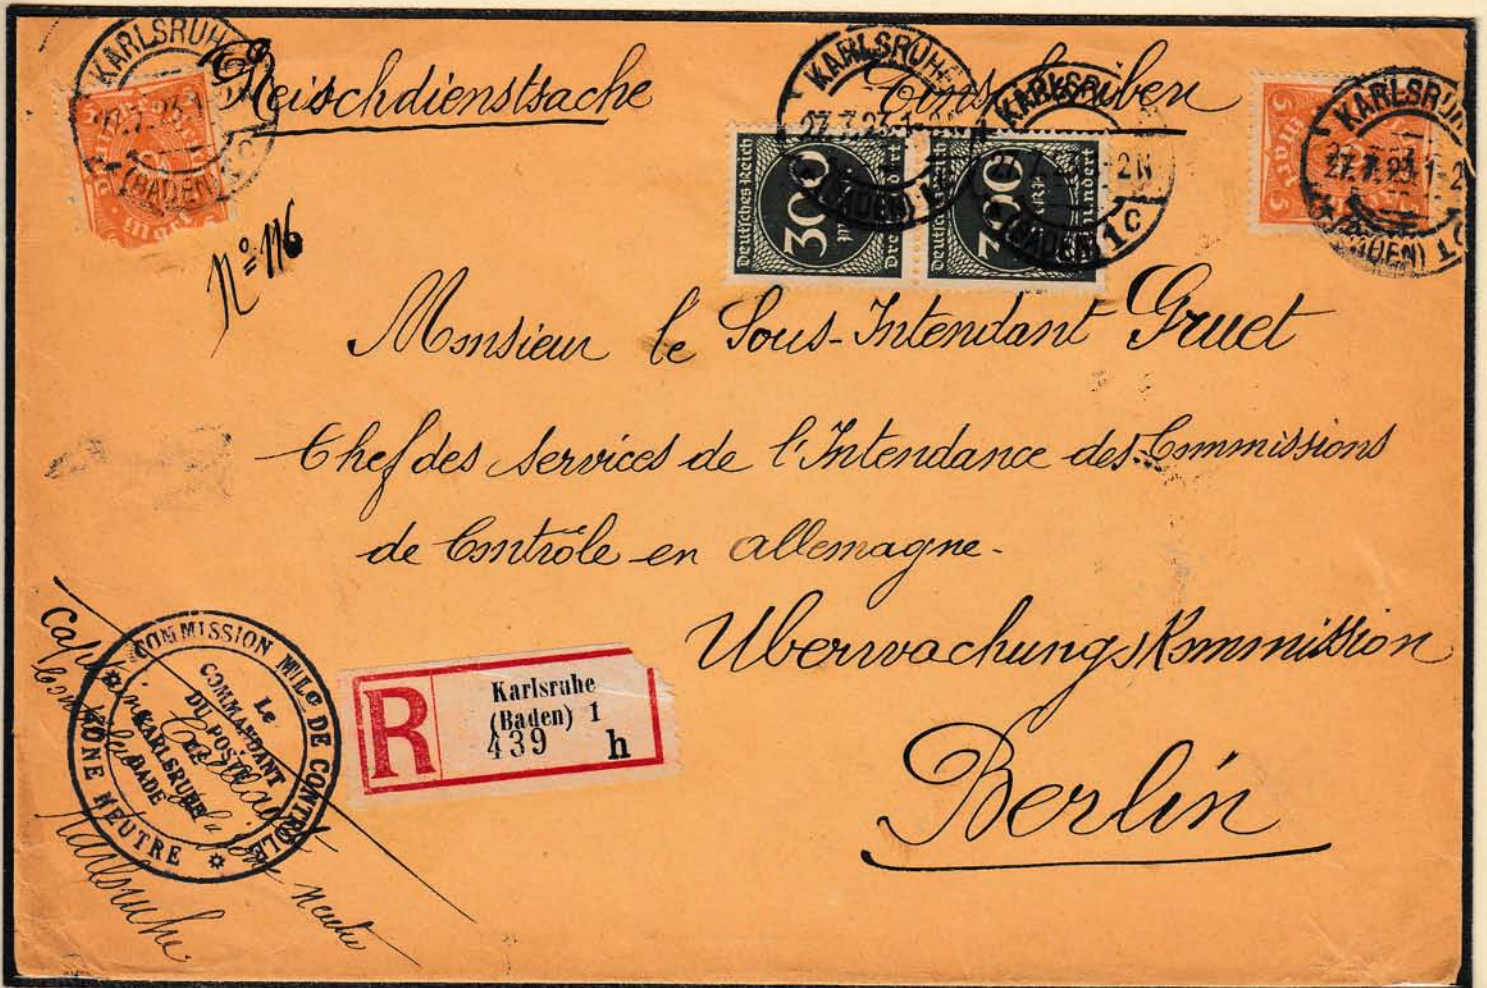 KARLSRUHE
27.7.23.1-
(BADEN) 1c
Reischdienstsache
Einschreiben
KARLSRUHE
27.7.23.1-2N
(BADEN)
KARLSRUHE
27.7.23.1-2N
(BADEN) 1c
KARLSRUHE
27.7.23.1-2
(BADEN) 1c
5
Deutsches Reich
300
Mark
Dreihundert
Deutsches Reich
300
Mark
Dreihundert
5 Mark 5
No 116
Monsieur le Sous-Intendant Gruet
Chef des services de l'Intendance des Commissions
de Contrôle en allemagne-
Uberwachungskommission
Berlin
COMMISSION MILre DE CONTRÔLE
ZONE NEUTRE
Le
COMMANDANT
DU POSTE
DE
KARLSRUHE
BADE
neutre
Karlsruhe
R
Karlsruhe
(Baden) 1
439 h